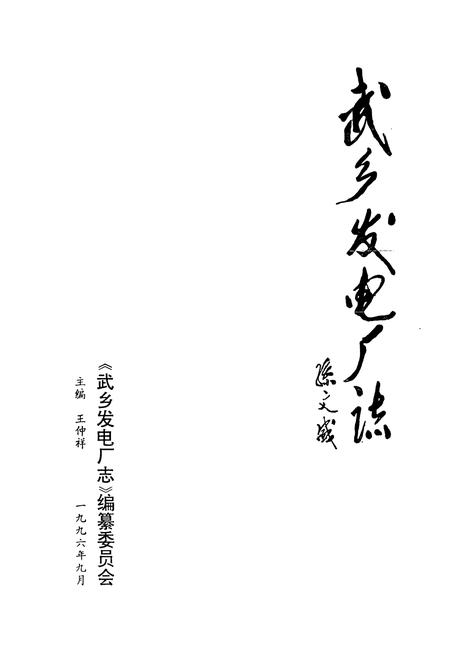 武乡发电厂志
孙文盛
《武乡发电厂志》编纂委员会
主编 王仲祥
一九九六年九月